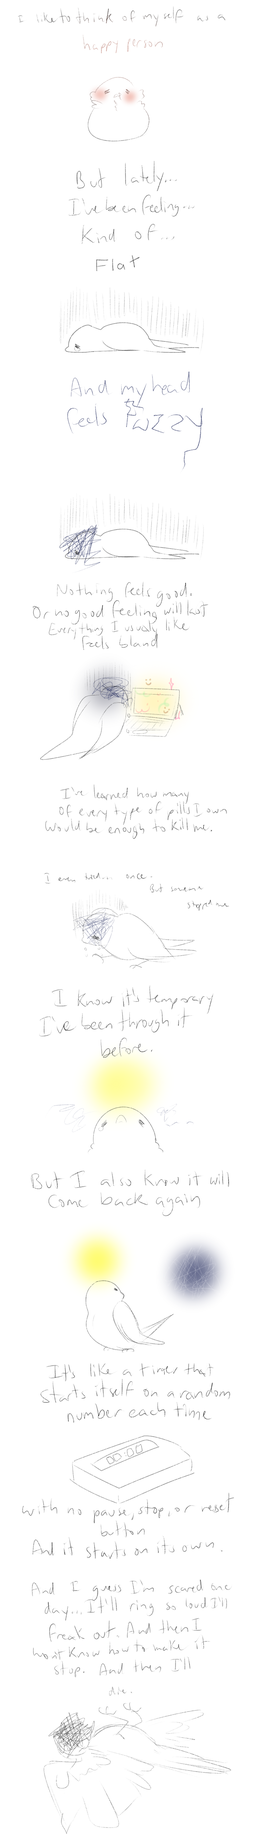 I like to think of myself as a
happy person
But lately...
I've been feeling...
Kind of...
Flat
And my head
feels Fuzzy
Nothing feels good.
Or no good feeling will last
Everything I usually like
feels bland
I've learned how many
of every type of pills I own
would be enough to kill me.
I even tried... once.
But someone
stopped me
I know it's temporary
I've been through it
before.
But I also know it will
come back again
It's like a timer that
starts itself on a random
number each time
00:00
with no pause, stop, or reset
button
And it starts on its own.
And I guess I'm scared one
day... It'll ring so loud I'll
freak out. And then I
won't know how to make it
stop. And then I'll
die.